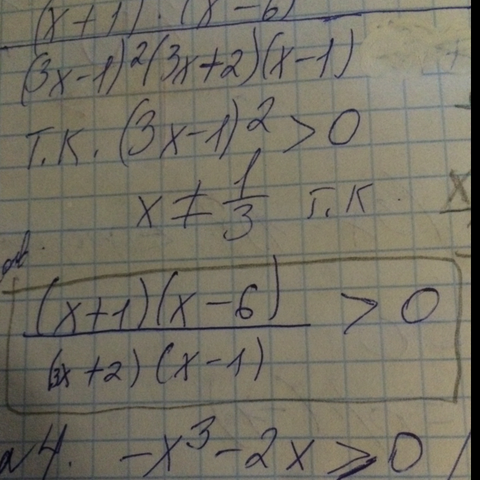 (x+1) · (x-6)
(3x-1)²(3x+2)(x-1)
т.к. (3x-1)² > 0
x ≠ 1/3 т.к.
(x+1)(x-6) / (3x+2)(x-1) > 0
4. -x³-2x ≥ 0